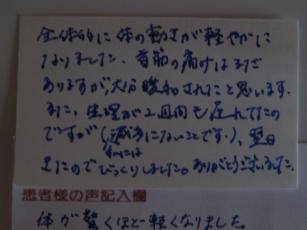 全体的に体の動きが軽やかに
なりました。首筋の痛みはまだ
ありますが、大分緩和されたと思います。
また、生理が2週間も遅れてたの
ですが(滅多にないことです…)、翌日
きたのでびっくりしました。ありがとうございました。
患者様の声記入欄
体が驚くほど軽くなりました。